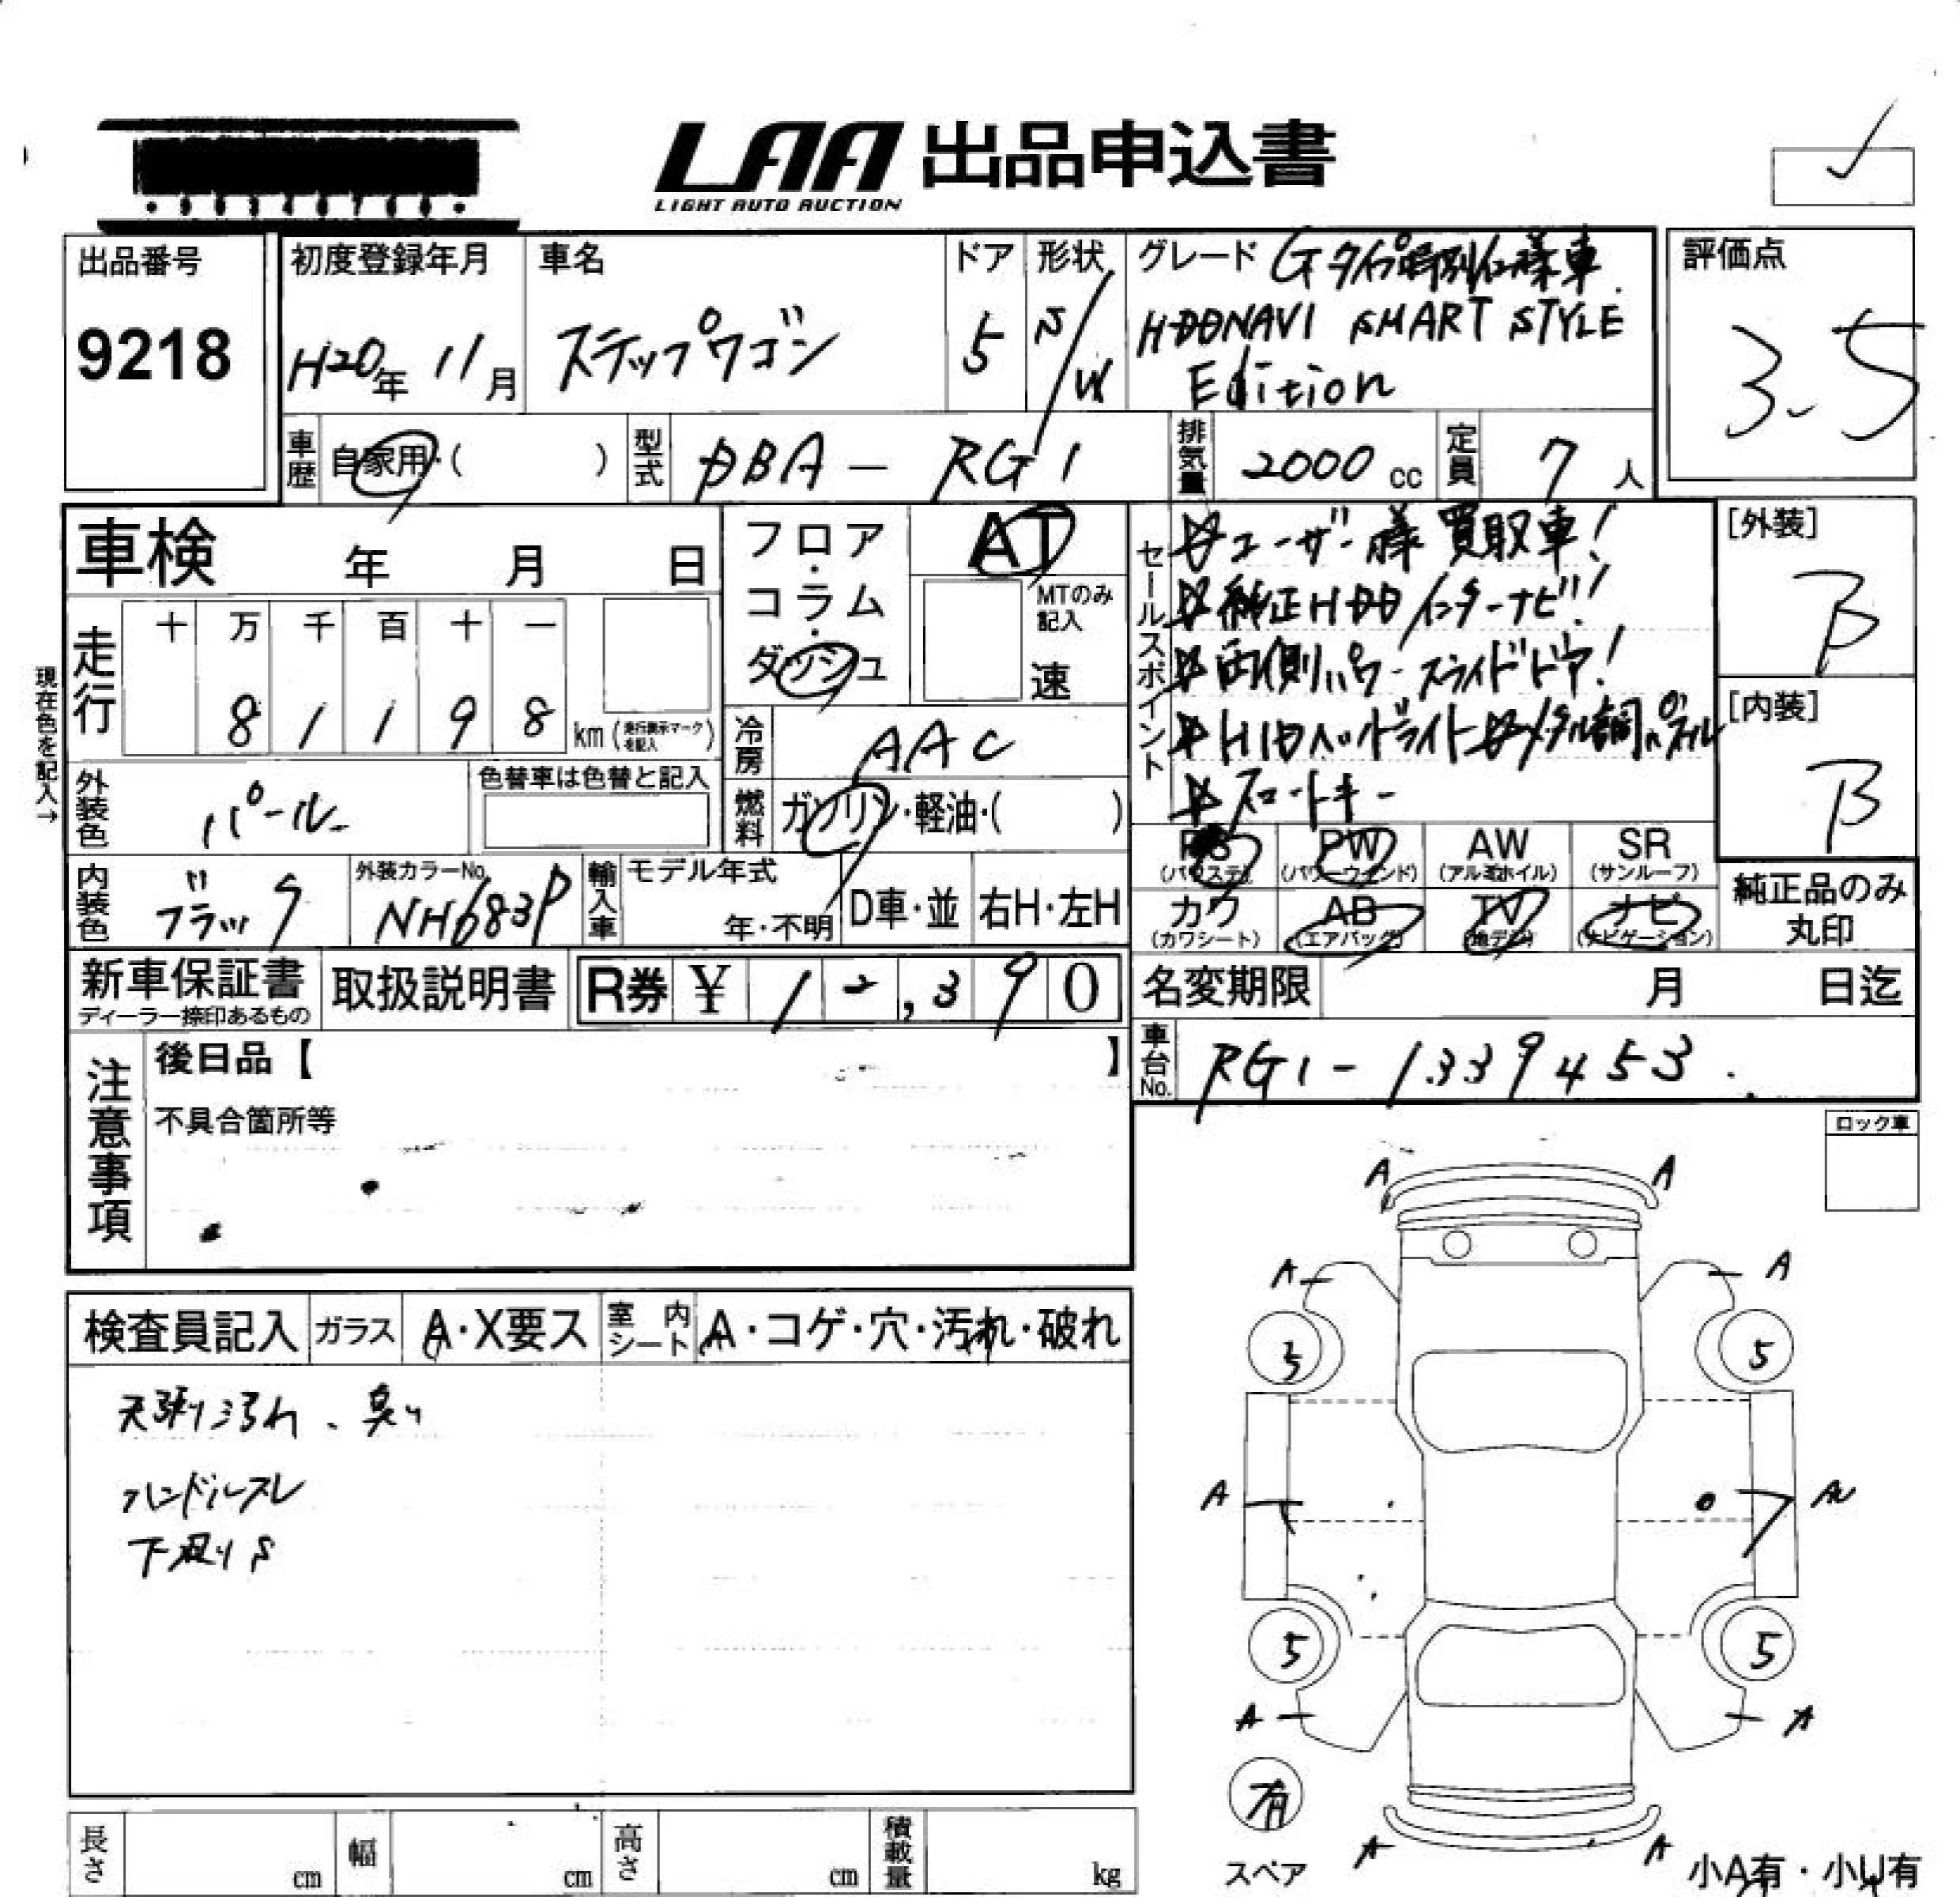 LAA 出品申込書
LIGHT AUTO AUCTION
出品番号
9218
初度登録年月
H20年 11月
車名
ステップワゴン
ドア
5
形状
S/W
グレード Gタイプ特別仕様車
HDDNAVI SMART STYLE
Edition
評価点
3.5
車歴 自家用・( )
型式 DBA - RG1
排気量 2000 cc
定員 7 人
車検 年 月 日
フロア・コラム・ダッシュ
AT
MTのみ記入
速
走行
十 万 千 百 十 一
8 1 1 9 8 km (走行表示マークを記入)
現在色を記入→
冷房 AAC
外装色 パール
色替車は色替と記入
燃料 ガソリン・軽油・( )
内装色 ブラック
外装カラーNo. NH683P
輸入車
モデル年式
年・不明
D車・並
右H・左H
セールスポイント
☆ユーザー様買取車!
☆純正HDDインターナビ!
☆両側パワースライドドア!
☆HIDヘッドライト☆メタル調パネル
☆スマートキー
[外装]
B
[内装]
B
PS (パワステ)
PW (パワーウインド)
AW (アルミホイル)
SR (サンルーフ)
カワ (カワシート)
AB (エアバッグ)
TV (地デジ)
ナビ (ナビゲーション)
純正品のみ丸印
新車保証書
ディーラー捺印あるもの
取扱説明書
R券 ¥ 12,390
名変期限 月 日迄
車台No. RG1-1339453
注意事項
後日品【 】
不具合箇所等
ロック車
検査員記入
ガラス A・X要ス
室内シート A・コゲ・穴・汚れ・破れ
天張り汚れ、臭い
ハンドルスレ
下廻りS
A A
A A
5 5
A
A A
5 5
有
スペア
A A
小A有・小U有
長さ cm
幅 cm
高さ cm
積載量 kg